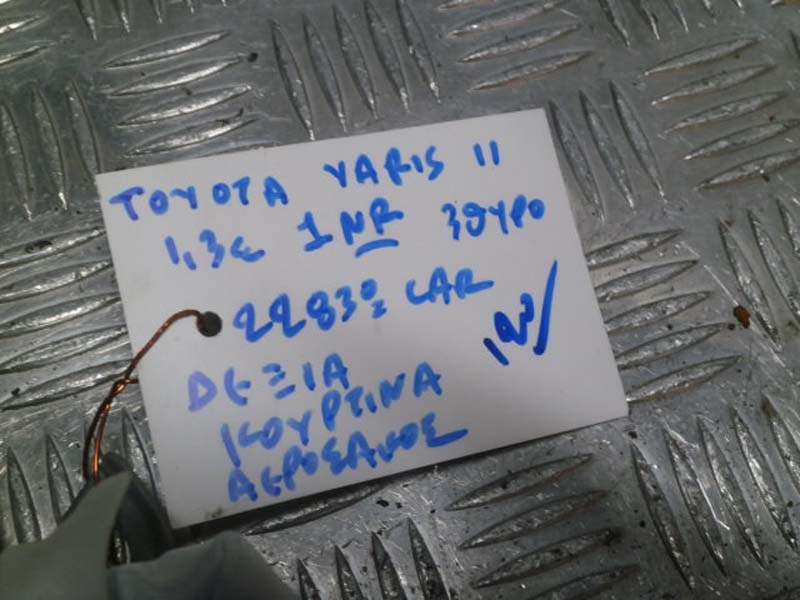 TOYOTA YARIS 11
1,3ε 1NR 3ΘΥΡΟ
2283º CAR
ΔΕΞΙΑ
ΚΟΥΡΤΙΝΑ
ΑΕΡΟΣΑΚΟΣ